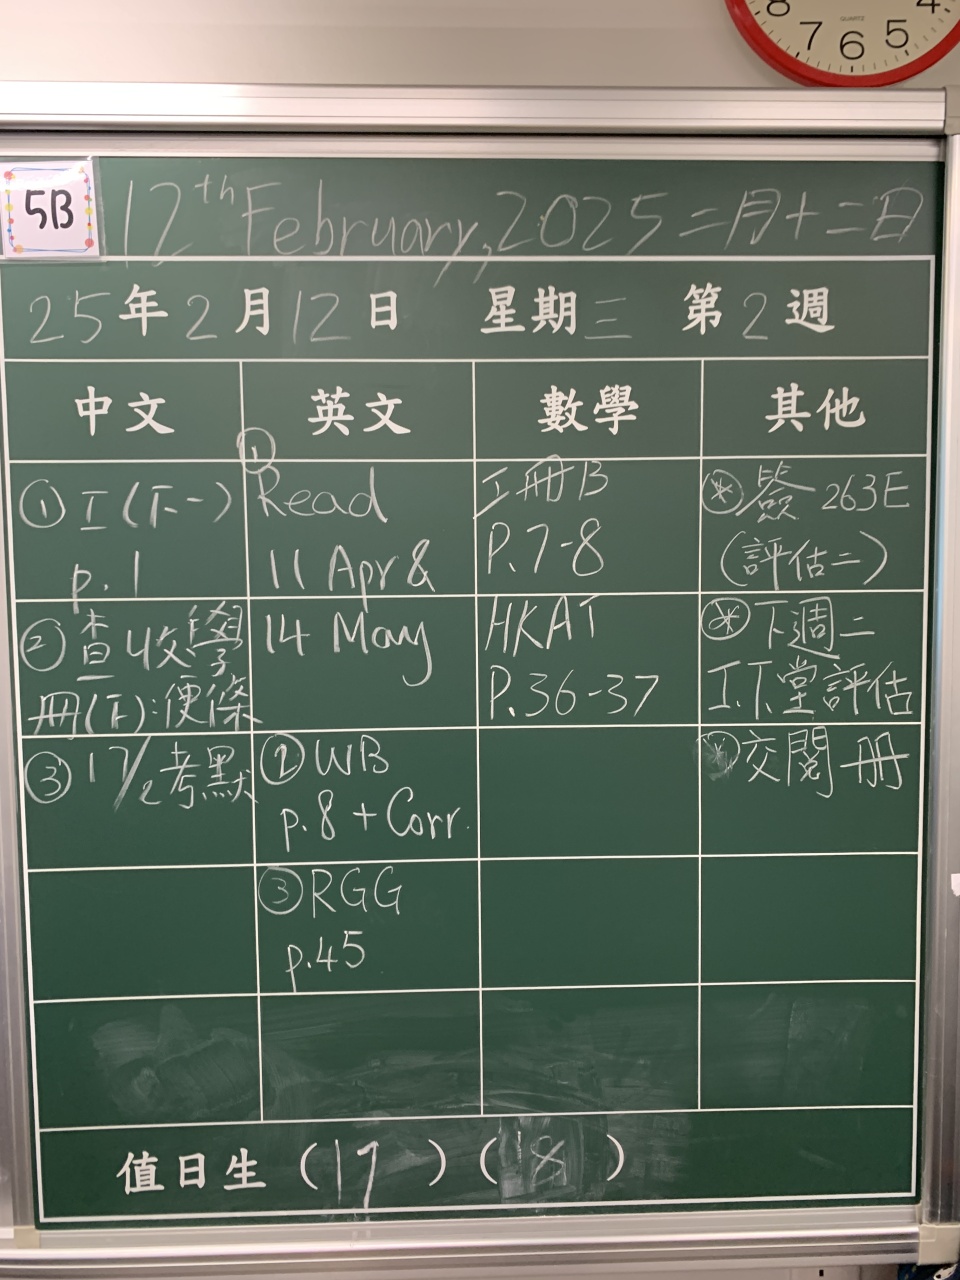 8 7 6 5 4
QUARTZ
5B
12th February, 2025 二月十二日
25年2月12日 星期三 第2週
中文 英文 數學 其他
① 工(下一)
p.1
② 查收學
冊(下):便條
③ 17/2考默
① Read
11 Apr &
14 May
② WB
p.8 + Corr.
③ RGG
p.45
工冊B
P.7-8
HKAT
P.36-37
* 簽 263E
(評估二)
* 下週二
I.T.堂評估
* 交閱冊
值日生 (17) (18)